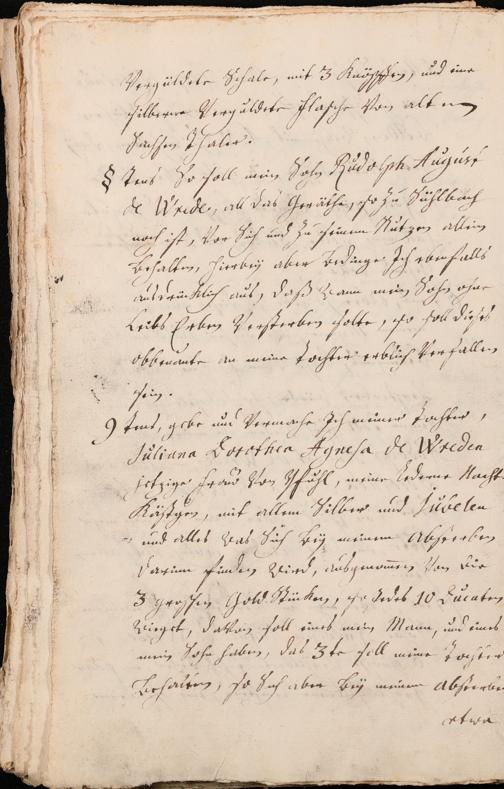 Vergüldete Schale, mit 3 Knöpfen, und eine
silberne Vergüldete Flasche Von alten
Sachsen Thaler.
8 tens So soll mein Sohn Rudolph August
de Wrede, all das Geräthe, so zu Sühlbach
noch ist, Vor Sich und zu seinem Nutzen allein
Behalten, hierbey aber Bedinge Ich ebenfalls
ausdrücklich aus, daß Wann mein Sohn ohne
Leibs Erben Versterben solte, so soll dieses
obbenante an meine Tochter erblich Verfallen
sein.
9 tens, gebe und Vermache Ich meiner Tochter,
Juliana Dorothea Agnesa de Wreden
jetzige Frau Von Pfühl, meine Lederne Nacht
Kästgen, mit allem Silber und Juvelen
und alles Was Sich Bey meinem Absterben
darinn finden Wird, ausgenommen Von die
3 grossen Gold Stücken, so Jedes 10 Ducaten
Wieget, daVon soll eines mein Mann, und eines
mein Sohn haben, das 3te soll meine Tochter
Behalten, so Sich aber Bey meinem Absterben
etwa